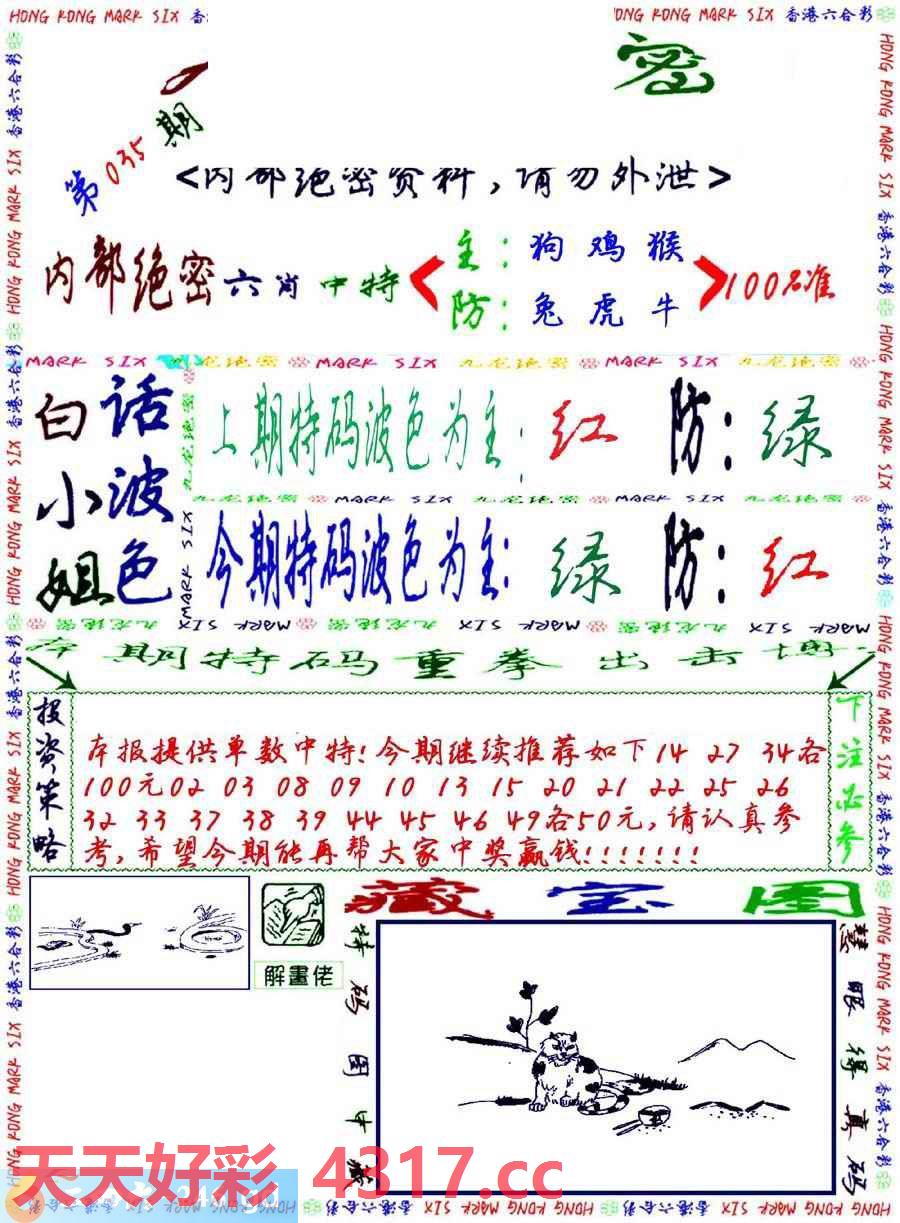 HONG KONG MARK SIX 香港六合彩
密
第035期
<内部绝密资料,请勿外泄>
内部绝密六肖中特
主:狗 鸡 猴
防:兔 虎 牛
100%准
MARK SIX 九龙绝密 MARK SIX 九龙绝密 MARK SIX 九龙绝密
白话小波姐色
上期特码波色为主:红 防:绿
九龙绝密 MARK SIX 九龙绝密 MARK SIX 九龙绝密 MARK SIX
今期特码波色为主:绿 防:红
本期特码重拳出击博
投资策略
本报提供单数中特!今期继续推荐如下14 27 34各
100元02 03 08 09 10 13 15 20 21 22 25 26
32 33 37 38 39 44 45 46 49各50元,请认真参
考,希望今期能再帮大家中奖赢钱!!!!!!!
下注必参
藏宝图
解畫佬
特码图中藏
慧眼得真码
天天好彩 4317.cc
HONG KONG MARK SIX 香港六合彩